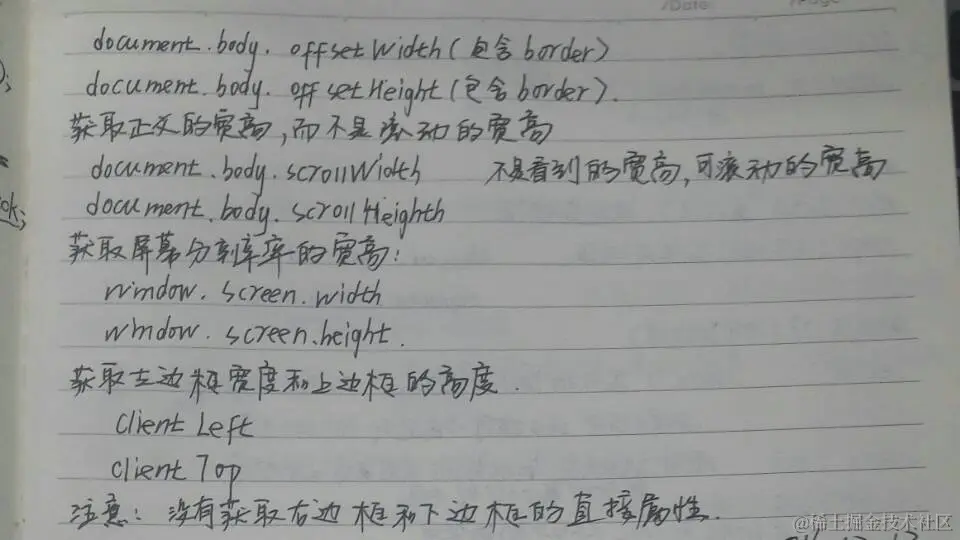 /Date
/Page
document.body.offsetWidth(包含border)
document.body.offsetHeight(包含border).
获取正文的宽高,而不是滚动的宽高
document.body.scrollWidth 不是看到的宽高,可滚动的宽高
document.body.scrollHeighth
获取屏幕分辨率的宽高:
window.screen.width
window.screen.height.
获取左边框宽度和上边框的高度.
client Left
client Top
注意: 没有获取右边框和下边框的直接属性.
ok;
@稀土掘金技术社区